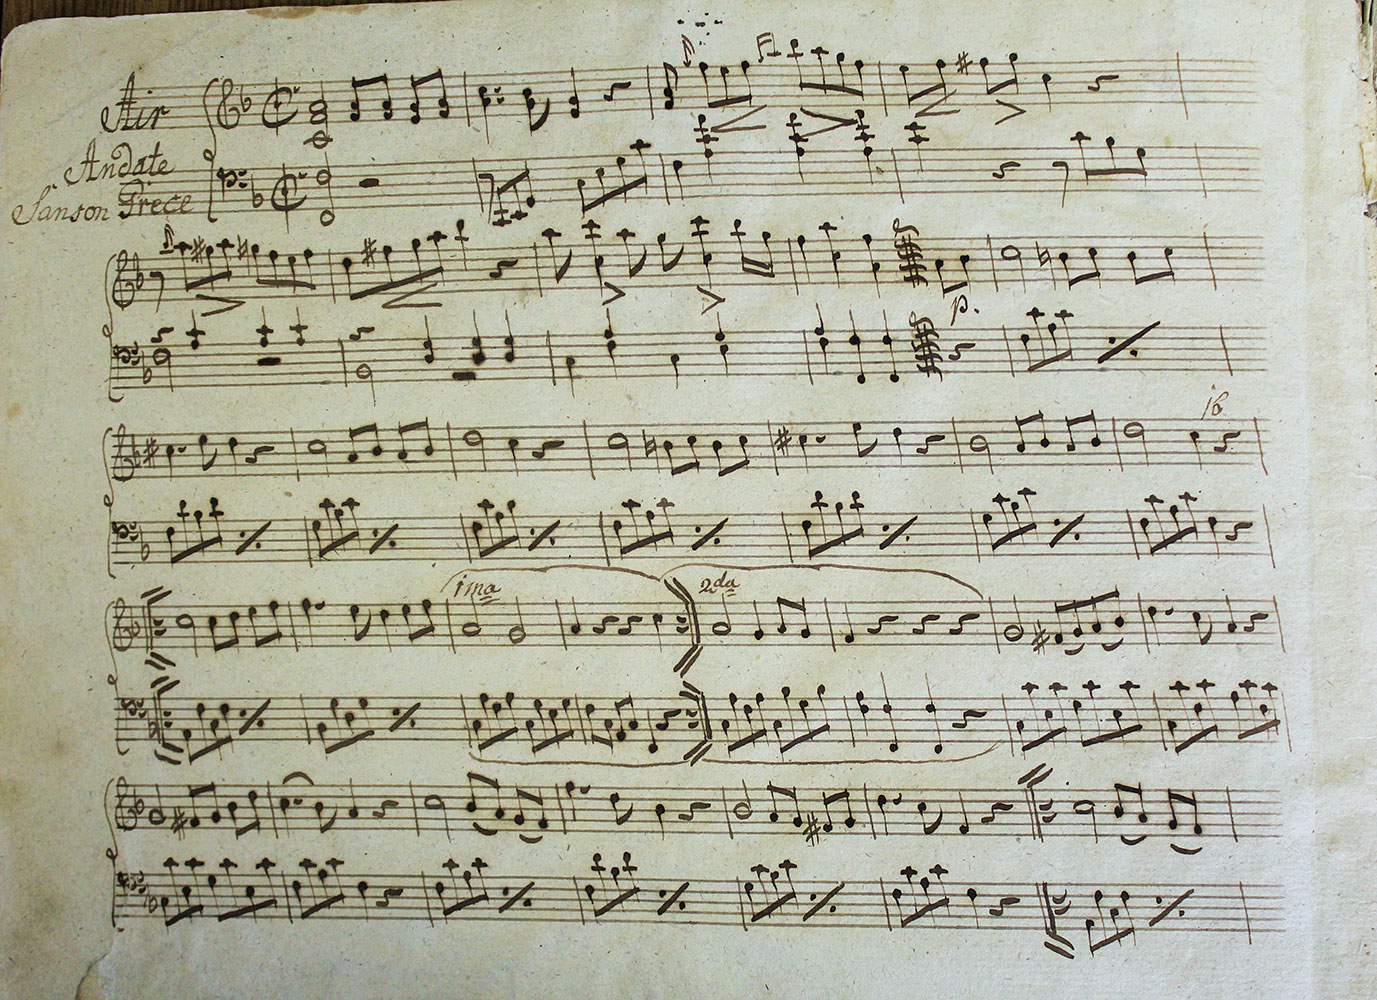 Air
Andate
Sanson Grece
p.
1ma
2da